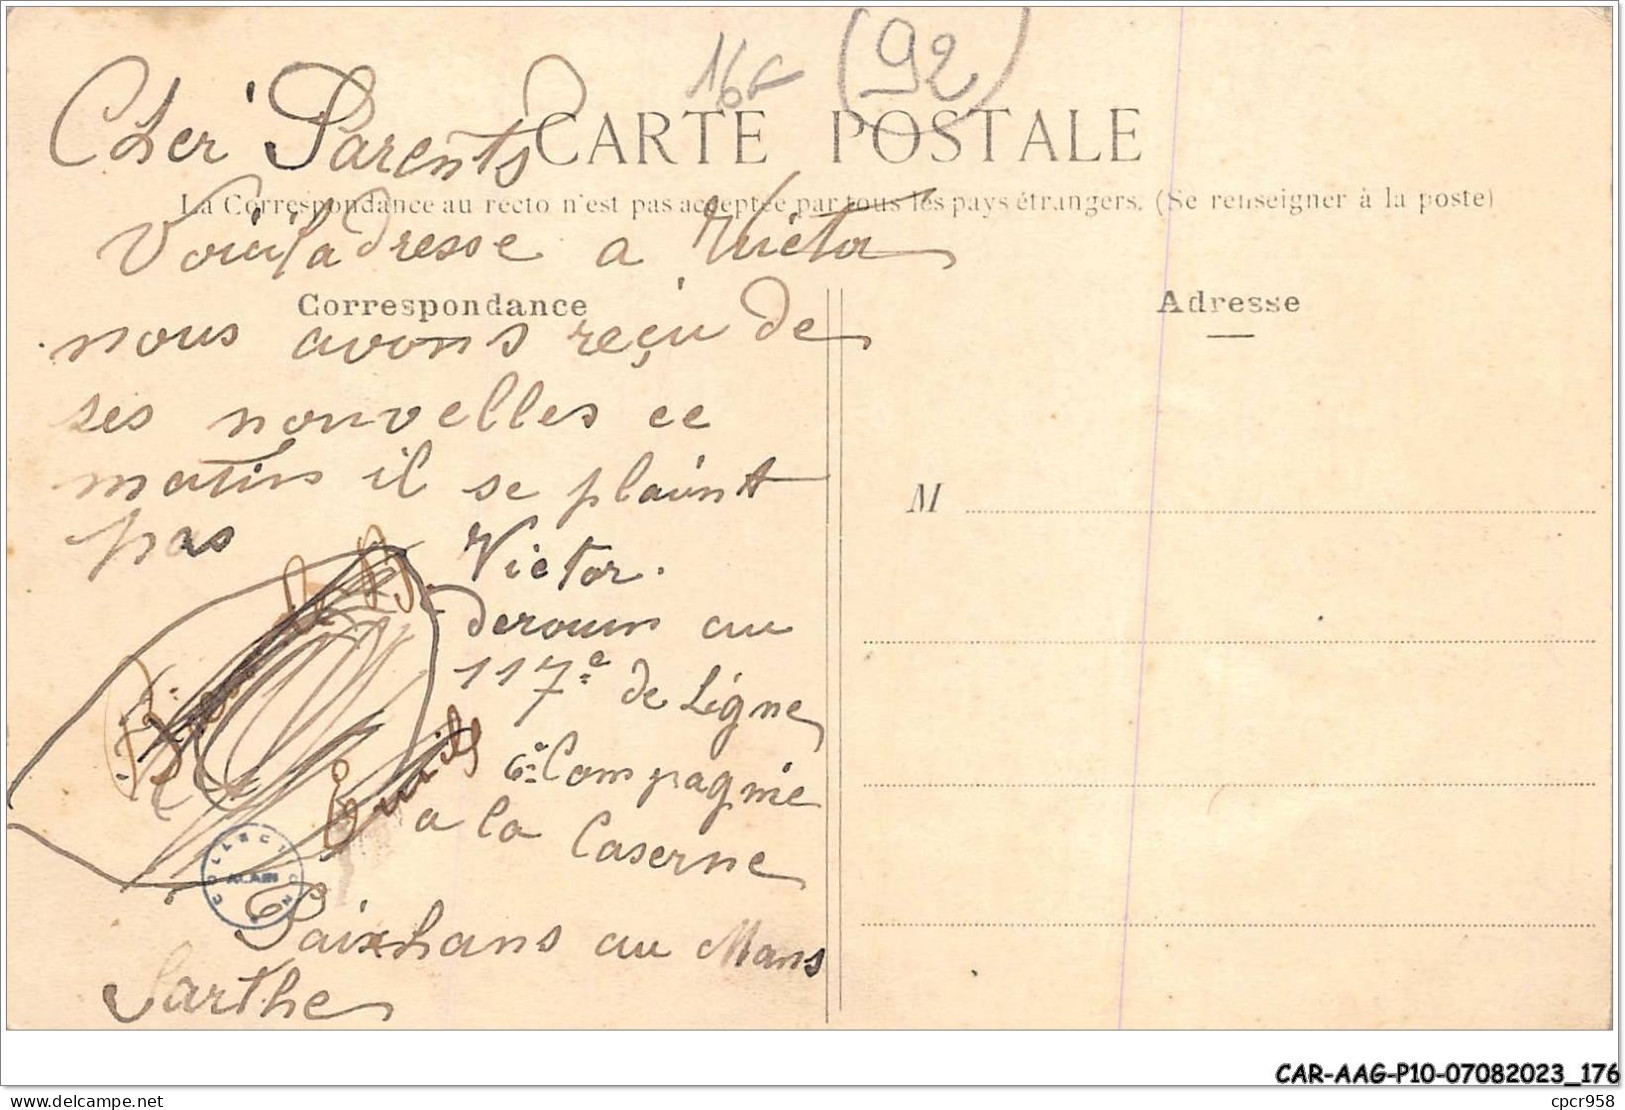 16 F (92)
Cher Parents
CARTE POSTALE
La Correspondance au recto n'est pas acceptée par tous les pays étrangers. (Se renseigner à la poste)
Voici l'adresse a Victor
Correspondance
Adresse
nous avons reçu de
ses nouvelles ce
matin il se plaint
pas
M
Victor.
derouin au
117e de Ligne
6e Compagnie
a la Caserne
COLLECTION
ALAIN
Paixhans au Mans
Sarthe
CAR-AAG-P10-07082023_176
delcampe.net
cpcr958